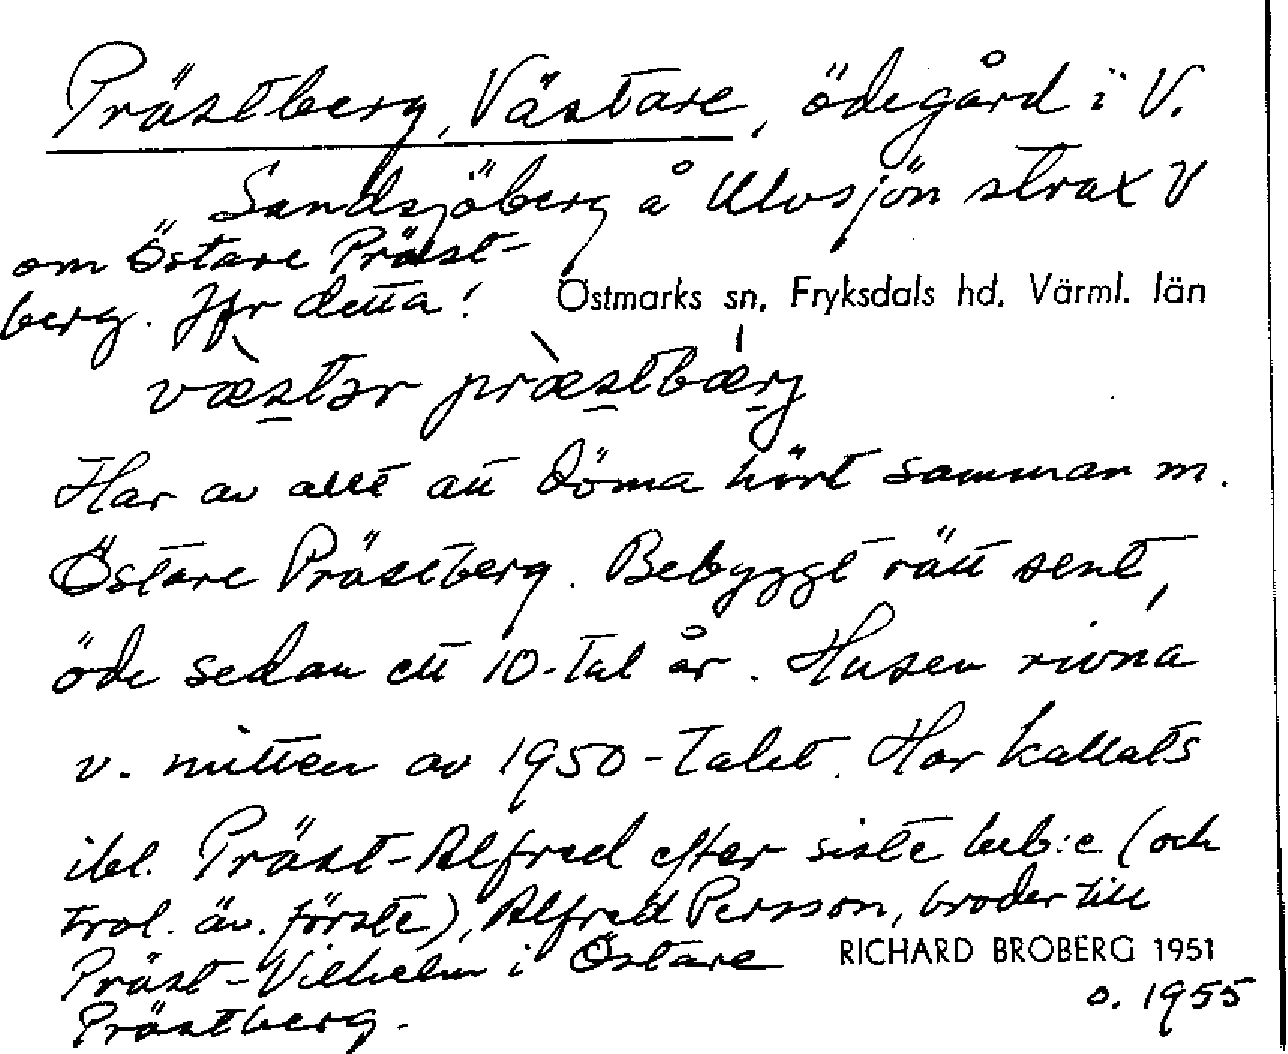 Prästberg, Västare, ödegård i V.
Sandsjöberg å Ulvsjön strax V
om Östare Präst-
berg. Jfr detta!
Östmarks sn, Fryksdals hd. Värml. län
væstər præstbærj
Har av allt att döma hört samman m.
Östare Prästberg. Bebyggt rätt sent,
öde sedan ett 10-tal år. Husen rivna
v. mitten av 1950-talet. Har kallats
ibl. Präst-Alfred efter siste beb:e (och
trol. äv. förste), Alfred Persson, broder till
Präst-Vilhelm i Östare
Prästberg.
RICHARD BROBERG 1951
o. 1955